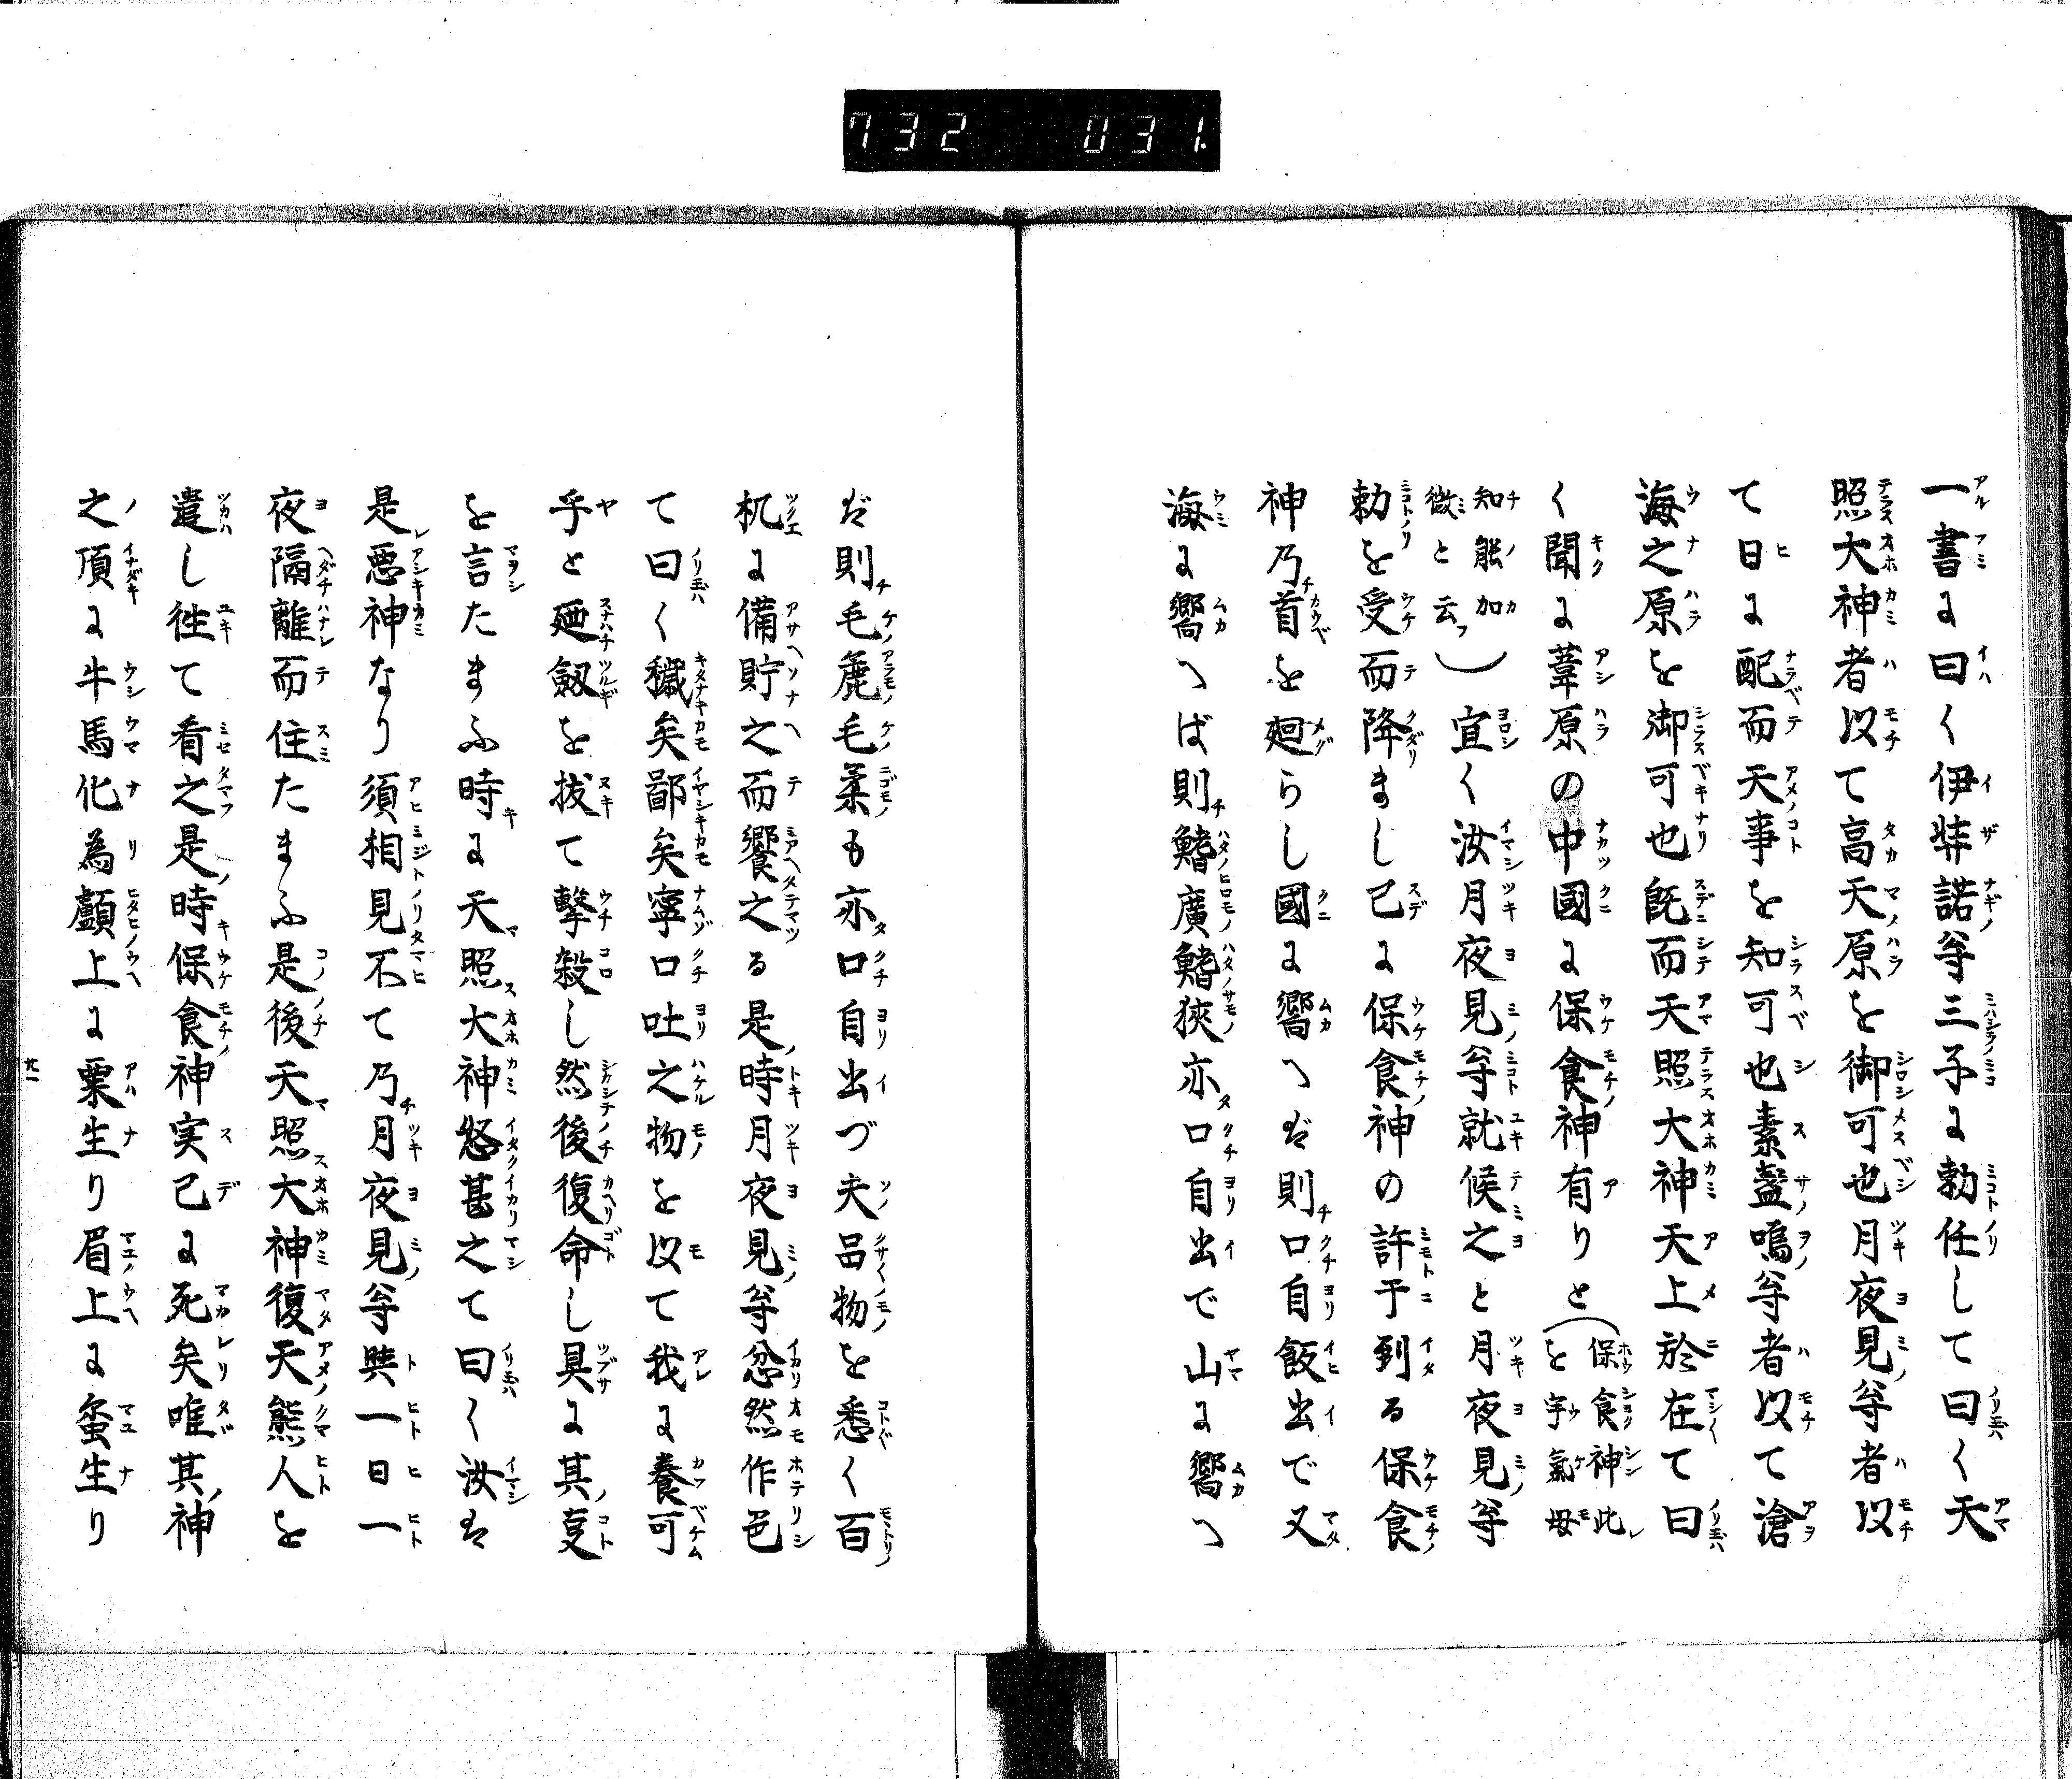 732 031.
一書に曰く伊弉諾尊三子に勅任して曰く天
照大神者以て高天原を御可也月夜見尊者以
て日に配而天事を知可也素盞嗚尊者以て滄
海之原を御可也既而天照大神天上於在て曰
く聞に葦原の中國に保食神有りと(保食神此
を宇氣母
知能加
微と云)宜く汝月夜見尊就候之と月夜見尊
勅を受而降まし已に保食神の許于到る保食
神乃首を廻らし國に嚮へば則口自飯出で又
海に嚮へば則鰭廣鰭狹亦口自出で山に嚮へ
ば則毛麁毛柔も亦口自出づ夫品物を悉く百
机に備貯之而饗之る是時月夜見尊忿然作色
て曰く穢矣鄙矣寧口吐之物を以て我に養可
乎と廼劔を拔て擊殺し然後復命し具に其事
を言たまふ時に天照大神怒甚之て曰く汝は
是惡神なり須相見不て乃月夜見尊與一日一
夜隔離而住たまふ是後天照大神復天熊人を
遣し徃て看之是時保食神実已に死矣唯其神
之頂に牛馬化為顱上に粟生り眉上に蚕生り
廿一